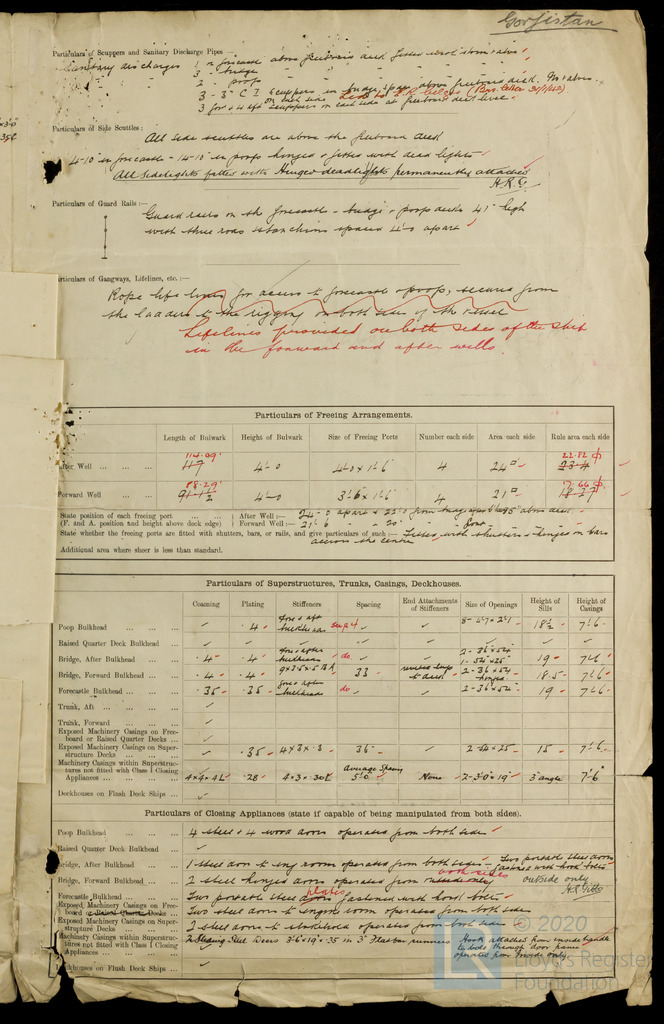 Gorjistan
Particulars of Scuppers and Sanitary Discharge Pipes
Sanitary discharges 1 in forecastle above freeboard deck fitted with storm valves
3 - bridge
2 - poop
3 - 3" C I scuppers in bridge space above freeboard deck. No valves
on each side
3 for & 4 aft scuppers on each side at freeboard deck level
Particulars of Side Scuttles:
All side scuttles are above the freeboard deck
4-10" in forecastle - 14-10" in poop hinged & fitted with dead lights
All sidelights fitted with Hinged deadlights permanently attached
H.R.G.
Particulars of Guard Rails :—
Guard rails on the forecastle - bridge & poop decks 4'- high
with three rods & stanchions spaced 4'-0 apart
Particulars of Gangways, Lifelines, etc. :—
Rope life lines for access to forecastle & poop, secured from
the ladders to the rigging on both sides of the vessel
Lifelines provided on both sides of the ship
in the forward and after wells.
Particulars of Freeing Arrangements.
Length of Bulwark Height of Bulwark Size of Freeing Ports Number each side Area each side Rule area each side
114.09' 22.82
After Well 117 4'-0 4'-0 x 1'-6" 4 24 23.4
88.29' 17.66
Forward Well 91-1½ 4'-0 3'6 x 1'6" 4 21 18.27
State position of each freeing port After Well :—
(F. and A. position and height above deck edge) Forward Well :—
State whether the freeing ports are fitted with shutters, bars, or rails, and give particulars of such :— Fitted with shutters & hinged on bars
across the centre
Additional area where sheer is less than standard.
Particulars of Superstructures, Trunks, Casings, Deckhouses.
Coaming Plating Stiffeners Spacing End Attachments of Stiffeners Size of Openings Height of Sills Height of Casings
Poop Bulkhead .4 fore & aft bulkheads 18½ 7'6
Raised Quarter Deck Bulkhead
Bridge, After Bulkhead .4 .4 fore & after bulkheads do 2-36x54 1-54x25 19 7'6
Bridge, Forward Bulkhead .4 .4 33 2-36x54 hinged 18.5 7'6
Forecastle Bulkhead .35 .35 fore & after bulkheads do 2-36x54 19 7'6
Trunk, Aft
Trunk, Forward
Exposed Machinery Casings on Freeboard or Raised Quarter Decks
Exposed Machinery Casings on Superstructure Decks .35 4x3x.3 36 2-54x25 15 7'6
Machinery Casings within Superstructures not fitted with Class 1 Closing Appliances .28 4x3x.30L Average Spacing 5'0 None 2-3'0"x19" 3" angle 7'6"
Deckhouses on Flush Deck Ships
Particulars of Closing Appliances (state if capable of being manipulated from both sides).
Poop Bulkhead 4 steel & 4 wood doors operated from both sides
Raised Quarter Deck Bulkhead
Bridge, After Bulkhead 1 steel door to eng room operated from both sides - Two portable steel doors
fastened with hook bolts
Bridge, Forward Bulkhead 2 steel hinged doors operated from inside only both sides outside only
H.R. Gibbs
Forecastle Bulkhead Two portable steel doors plates fastened with hook bolts
Exposed Machinery Casings on Freeboard or Raised Quarter Decks Two steel doors to engine room operated from both sides
Exposed Machinery Casings on Superstructure Decks 2 steel doors to stokehold operated from both sides
Machinery Casings within Superstructures not fitted with Class 1 Closing Appliances 2 Sliding Steel Doors 3'6 x 19" x .35 in 3" Flatbar runners Hook attached from inside
to hole through door frame
operated from inside only.
Deckhouses on Flush Deck Ships
© 2020
Lloyd's Register
Foundation